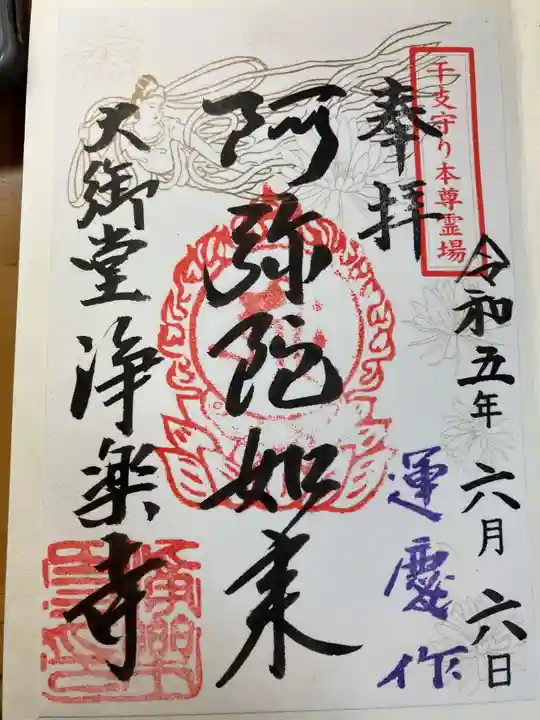 干支守り本尊霊場
奉拝
令和五年六月六日
阿弥陀如来
運慶作
大御堂浄楽寺